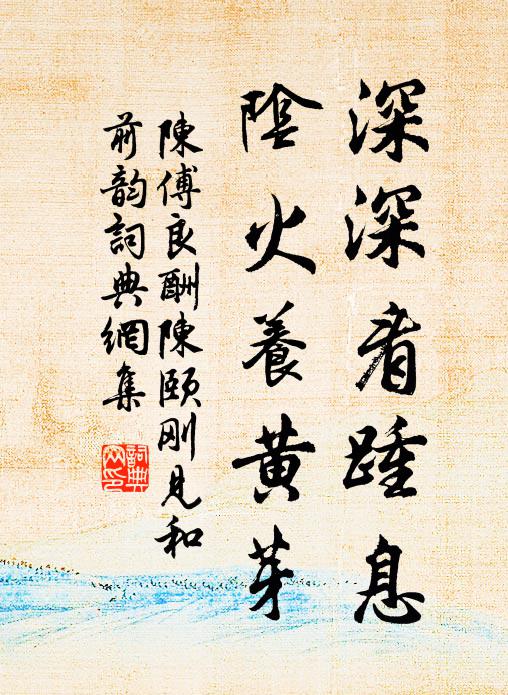 深深看踵息
陰火養黃芽
陳傅良酬陳頤剛見和
前韵詞典網集
詞典网印